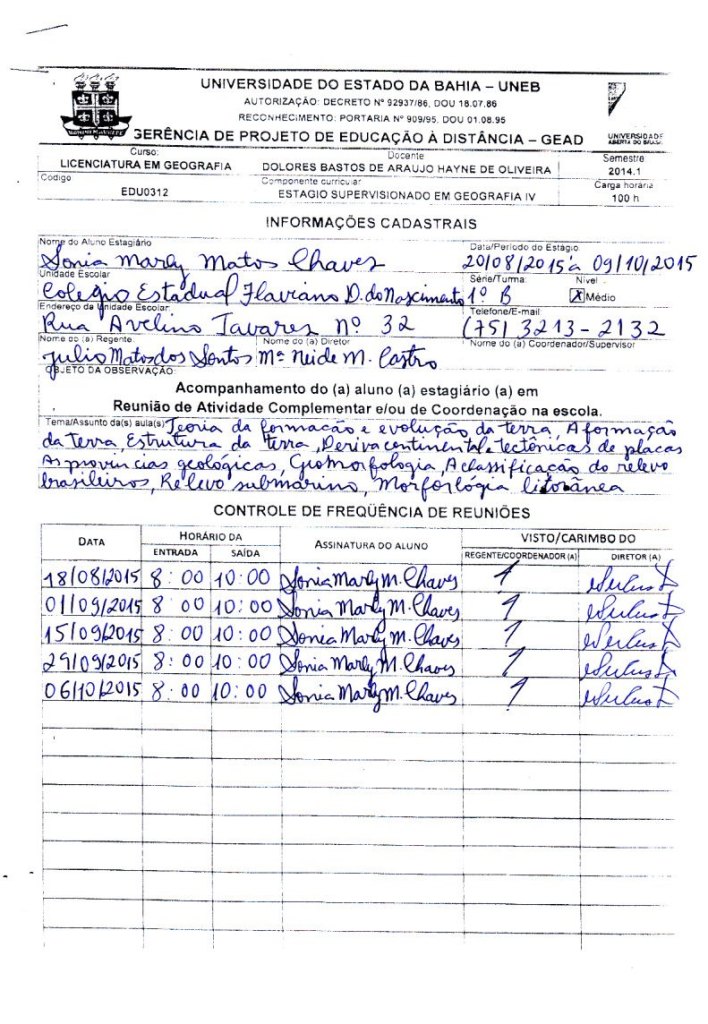 UNIVERSIDADE DO ESTADO DA BAHIA – UNEB
AUTORIZAÇÃO: DECRETO Nº 92937/86, DOU 18.07.86
RECONHECIMENTO: PORTARIA Nº 909/95, DOU 01.08.95
GERÊNCIA DE PROJETO DE EDUCAÇÃO À DISTÂNCIA – GEAD
UNIVERSIDADE
ABERTA DO BRASIL
Curso: Docente Semestre
LICENCIATURA EM GEOGRAFIA DOLORES BASTOS DE ARAUJO HAYNE DE OLIVEIRA 2014.1
Código Componente curricular Carga horária
EDU0312 ESTAGIO SUPERVISIONADO EM GEOGRAFIA IV 100 h
INFORMAÇÕES CADASTRAIS
Nome do Aluno Estagiário Data/Período do Estágio
Sonia Marly Matos Chaves 20/08/2015 à 09/10/2015
Unidade Escolar Série/Turma: Nível
Colegio Estadual Flaviano D. do Nascimento 1º B X Médio
Endereço da Unidade Escolar Telefone/E-mail
Rua Avelino Tavares Nº 32 (75) 3213-2132
Nome do (a) Regente Nome do (a) Diretor Nome do (a) Coordenador/Supervisor
Julio Matos dos Santos Mª Neide M. Castro
OBJETO DA OBSERVAÇÃO:
Acompanhamento do (a) aluno (a) estagiário (a) em
Reunião de Atividade Complementar e/ou de Coordenação na escola.
Tema/Assunto da(s) aula(s) Teoria da formação e evolução da terra, A formação
da terra, Estrutura da terra, Deriva continental, tectônicas de placas
As provincias geológicas, Geomorfologia, A classificação do relevo
brasileiros, Relevo submarino, Morforlógia litorânea
CONTROLE DE FREQÜÊNCIA DE REUNIÕES
DATA HORÁRIO DA ASSINATURA DO ALUNO VISTO/CARIMBO DO
ENTRADA SAÍDA REGENTE/COORDENADOR (A) DIRETOR (A)
18/08/2015 8:00 10:00 Sonia Marly M. Chaves
01/09/2015 8:00 10:00 Sonia Marly M. Chaves
15/09/2015 8:00 10:00 Sonia Marly M. Chaves
29/09/2015 8:00 10:00 Sonia Marly M. Chaves
06/10/2015 8:00 10:00 Sonia Marly M. Chaves